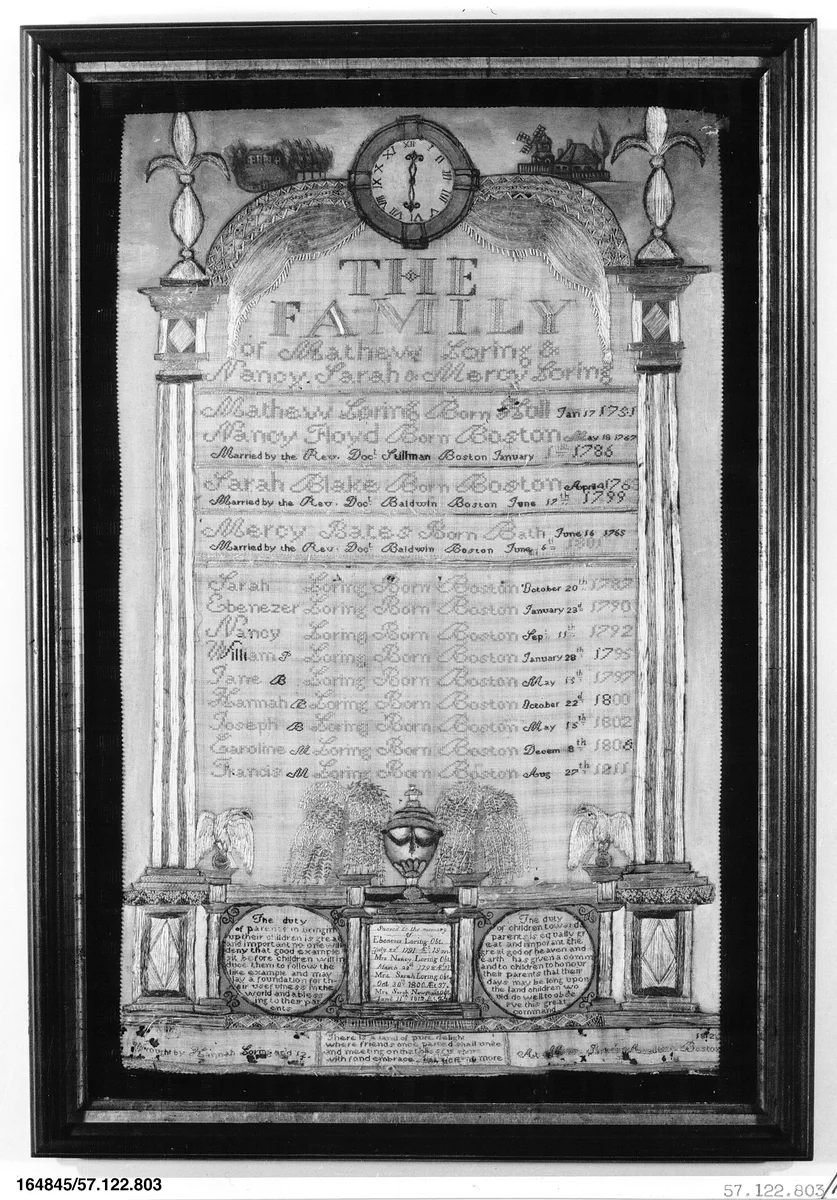 XII I II III V VI VII VIII IX X XI
THE
FAMILY
of Mathew Loring &
Nancy. Sarah & Mercy Loring
Mathew Loring Born Hull Jan 17 1751
Nancy Floyd Born Boston May 18 1767
Married by the Rev. Doct Stillman Boston January 1786
Sarah Blake Born Boston April 4 176
Married by the Rev. Doct Baldwin Boston June 17th 1799
Mercy Bates Born Bath June 16 1765
Married by the Rev. Doct Baldwin Boston June 6th 1801
Sarah Loring Born Boston October 20th 1787
Ebenezer Loring Born Boston January 23d 1790
Nancy Loring Born Boston Sep 11th 1792
William P Loring Born Boston January 28th 1795
Jane B Loring Born Boston May 13th 1797
Hannah B Loring Born Boston October 22d 1800
Joseph B Loring Born Boston May 15th 1802
Caroline M Loring Born Boston Decem 8th 1808
Francis M Loring Born Boston Aug 27th 1811
The duty
of parents in bringing
up their children is great
and important no one will
deny that good example
set before children will in
duce them to follow the
like example and may
lay a foundation for th
eir usefulness in the
world and a bless
ing to their par
ents
Sacred to the memory
of
Ebenezer Loring Obt
Mrs Nancy Loring Obt
Mrs. Sarah Loring Obt
Oct 30th 1800 Æt 37.
Mrs Sarah
June 11th
The duty
of children towards
parents is equally gr
eat and important the
great god of heaven and
earth has given a comm
and to children to honour
their parents that their
days may be long upon
the land children wo
uld do well to obse
rve this great
command
There is a land of pure delight
where friends once parted shall unite
and meeting on that shore
with fond embrace no more
Wrought by Hannah Loring aged 12
At Academy Boston
1812
164845/57.122.803
57.122.803